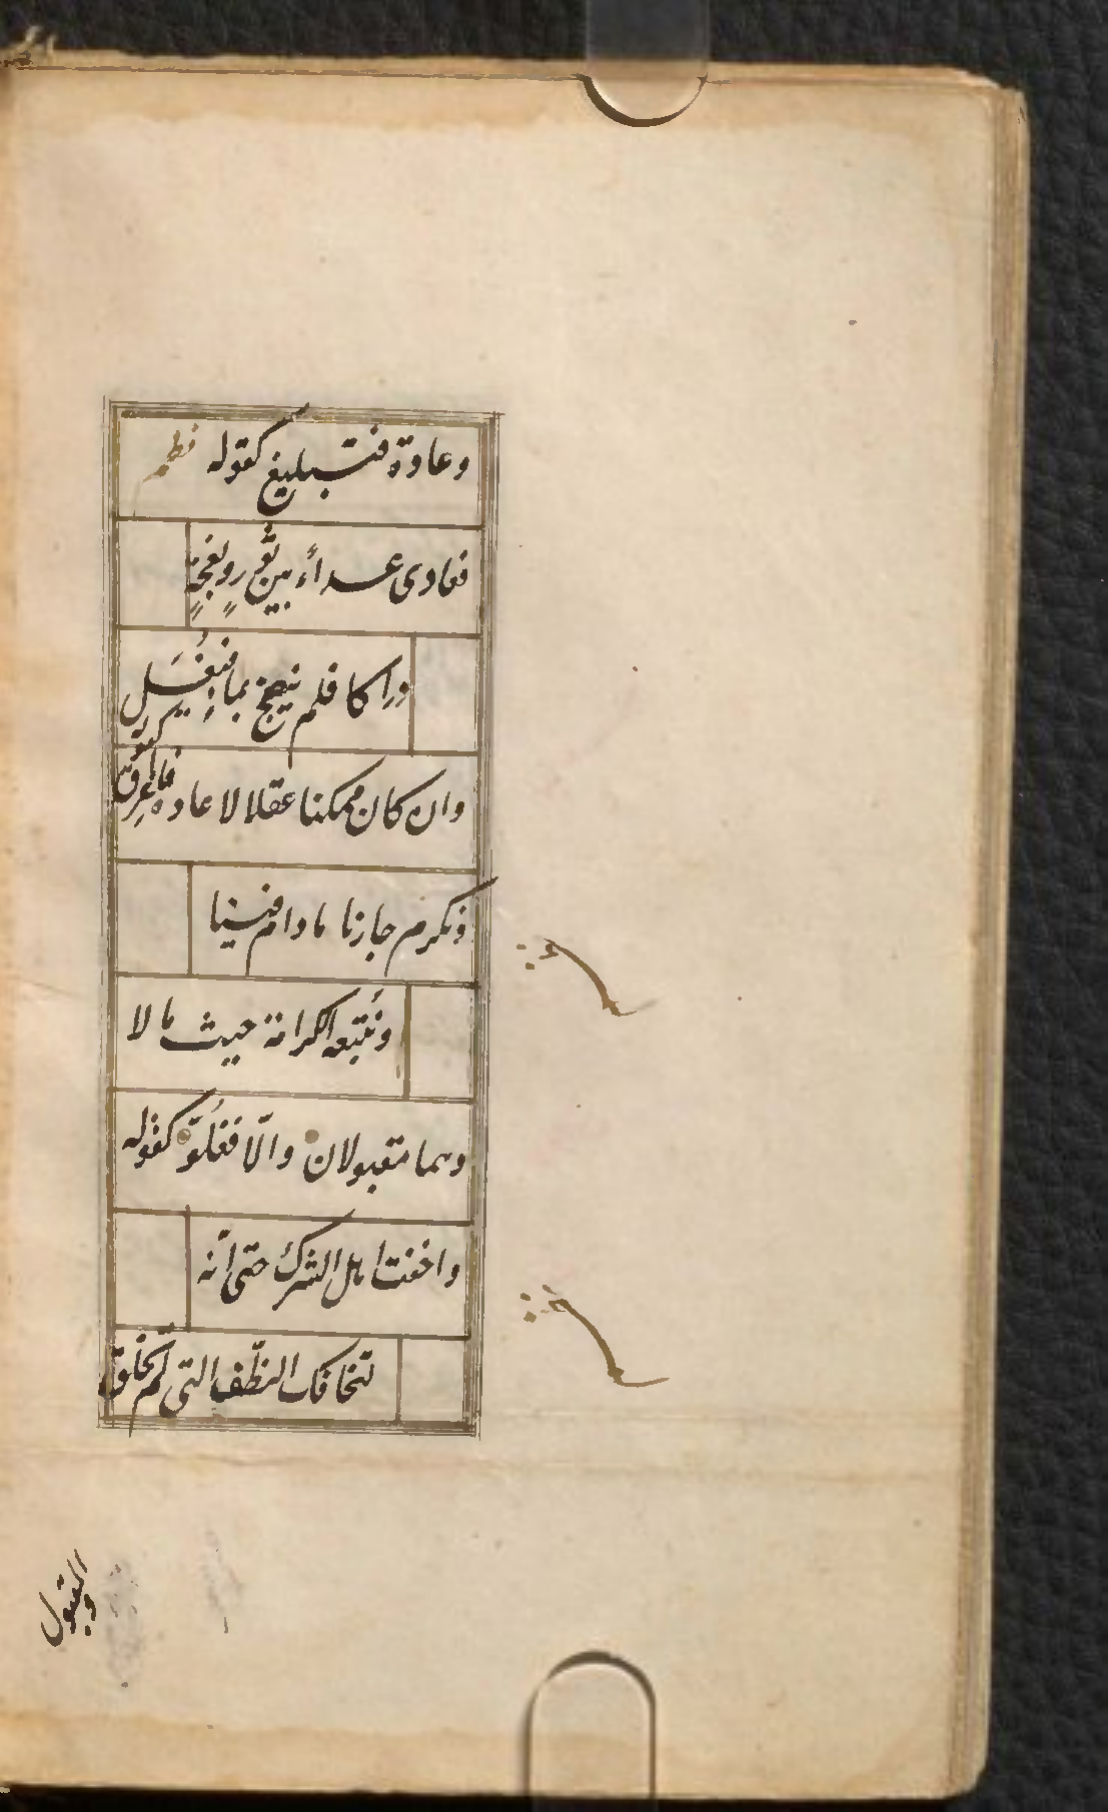 وعادة فتبليغ كقوله نظم
فعادى عداءً بين ثورٍ ونعجةٍ
دراكا فلم ينضح بماءٍ فيُغسَل
وان كان ممكنا عقلا لا عادة فاغراق كقوله
ونكرم جارنا مادام فينا
ونُتبعه الكرامة حيث مالا
وهما مقبولان والّا فغُلوّ كقوله
واخفت اهل الشرك حتى انّه
لتخافك النطف التى لم تخلق
والمقبول